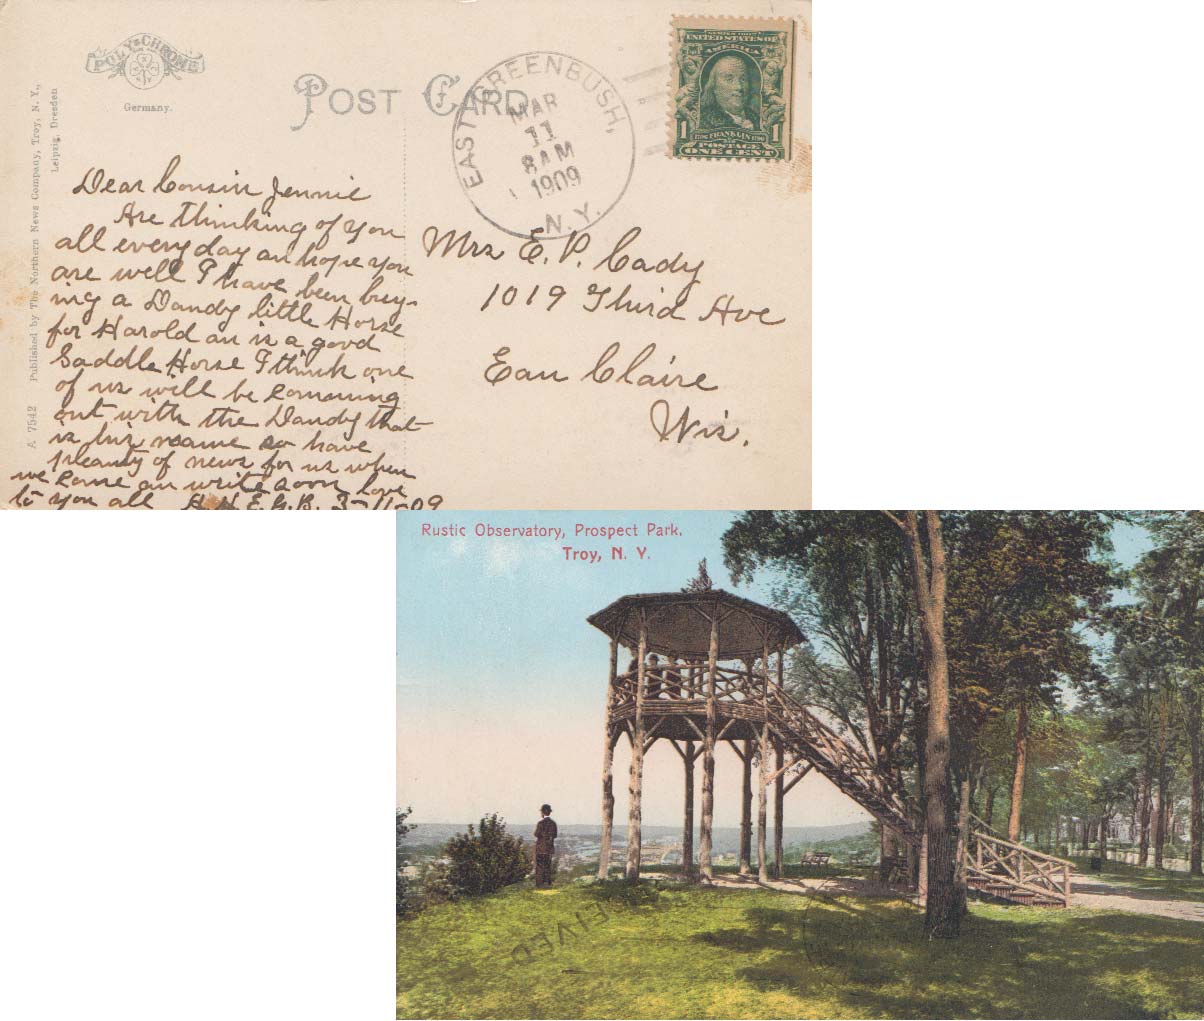 POLY-CHROME
Germany.
POST CARD
EAST GREENBUSH,
MAR
11
8 AM
1909
N.Y.
SERIES 1902
UNITED STATES OF
AMERICA
1 FRANKLIN 1
POSTAGE
ONE CENT
A 7542 Published by The Northern News Company, Troy, N. Y.,
Leipzig, Dresden
Dear Cousin Jennie
Are thinking of you
all every day an hope you
are well I have been buy-
ing a Dandy little Horse
for Harold an is a good
Saddle Horse I think one
of us will be comming
out with the Dandy that
is his name so have
pleanty of news for us when
we come an write soon love
to you all H.H.E.G.B. 3-11-09
Mrs E. P. Cady
1019 Third Ave
Eau Claire
Wis.
Rustic Observatory, Prospect Park.
Troy, N. Y.
EIVED